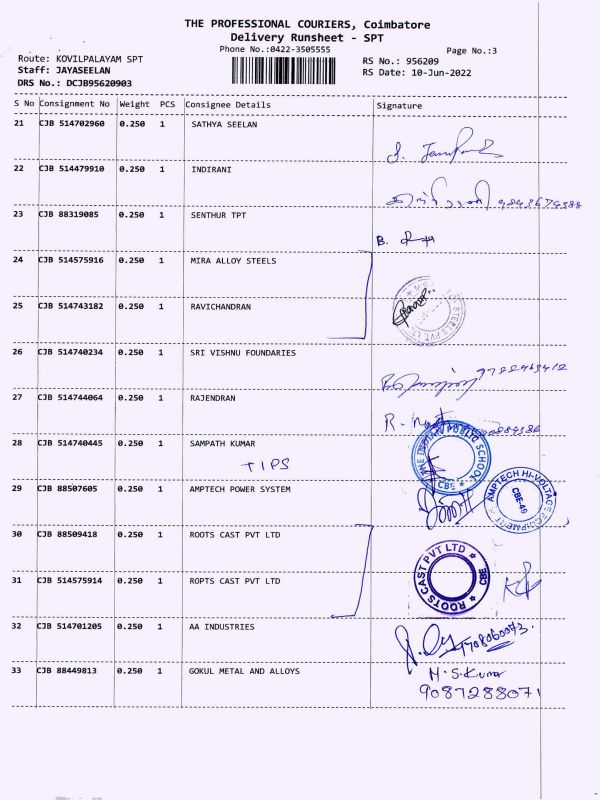 THE PROFESSIONAL COURIERS, Coimbatore
Delivery Runsheet - SPT
Phone No.:0422-3505555
Page No.:3
Route: KOVILPALAYAM SPT
Staff: JAYASEELAN
DRS No.: DCJB95620903
RS No.: 956209
RS Date: 10-Jun-2022
S No Consignment No Weight PCS Consignee Details Signature
21 CJB 514702960 0.250 1 SATHYA SEELAN
22 CJB 514479910 0.250 1 INDIRANI
9843674388
23 CJB 88319085 0.250 1 SENTHUR TPT
B.
24 CJB 514575916 0.250 1 MIRA ALLOY STEELS
25 CJB 514743182 0.250 1 RAVICHANDRAN
26 CJB 514740234 0.250 1 SRI VISHNU FOUNDARIES
27 CJB 514744064 0.250 1 RAJENDRAN
R.
28 CJB 514740445 0.250 1 SAMPATH KUMAR
TIPS
THE INDIAN PUBLIC SCHOOL
CBE
29 CJB 88507605 0.250 1 AMPTECH POWER SYSTEM
AMPTECH HI-VOLTAGE EQUIPMENT
CBE-49
30 CJB 88509418 0.250 1 ROOTS CAST PVT LTD
31 CJB 514575914 0.250 1 ROPTS CAST PVT LTD
ROOTS CAST PVT LTD
CBE
32 CJB 514701205 0.250 1 AA INDUSTRIES
33 CJB 88449813 0.250 1 GOKUL METAL AND ALLOYS
M.S.Kumar
9087288071